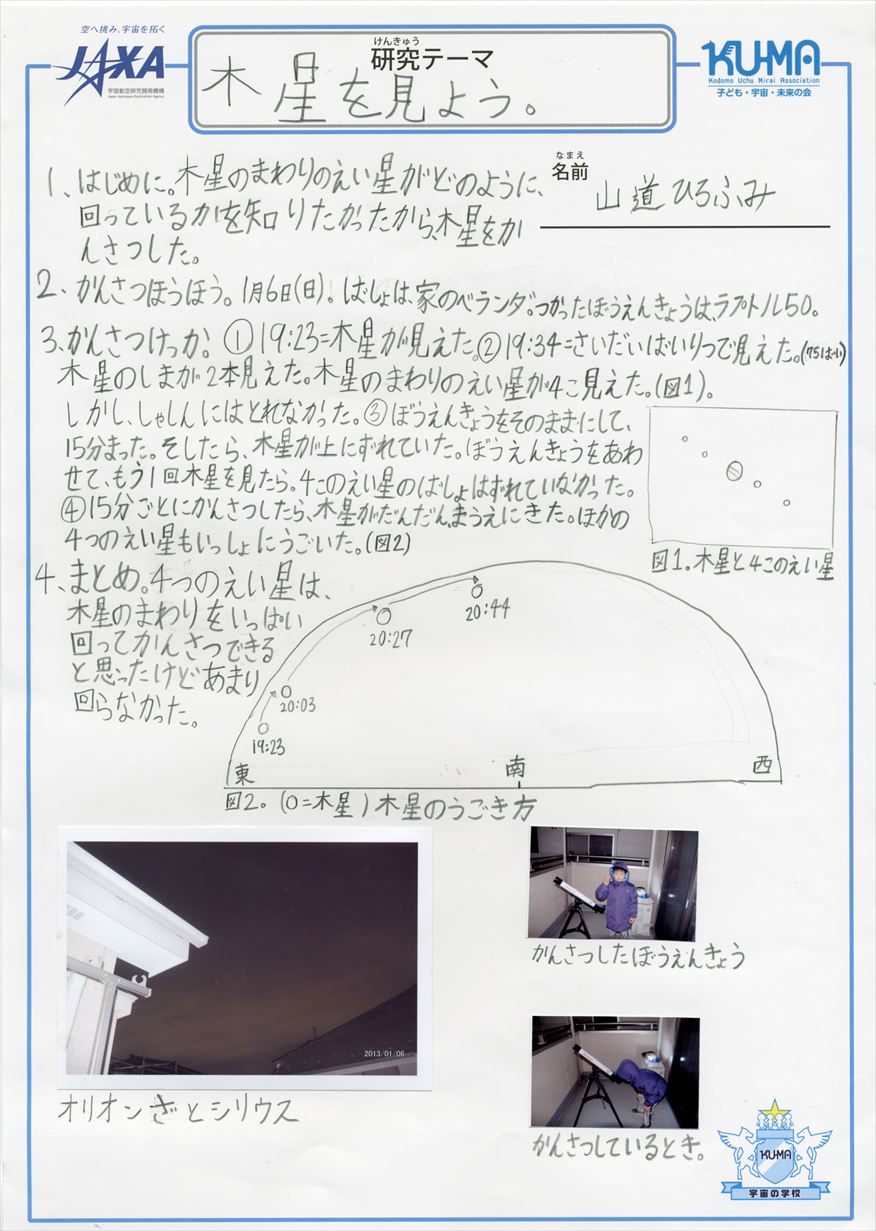 空へ挑み、宇宙を拓く
JAXA
宇宙航空研究開発機構
Japan Aerospace Exploration Agency
けんきゅう
研究テーマ
木星を見よう。
KU-MA
Kodomo Uchu Mirai Association
子ども・宇宙・未来の会
なまえ
名前
山道ひろふみ
1、はじめに。木星のまわりのえい星がどのように、
回っているかを知りたかったから、木星をか
んさつした。
2、かんさつほうほう。1月6日(日)。ばしょは、家のベランダ。つかったぼうえんきょうは、ラプトル50。
3、かんさつけっか。①19:23=木星が見えた。②19:34=さいだいばいりつで見えた。(75ばい)
木星のしまが2本見えた。木星のまわりのえい星が4こ見えた。(図1)。
しかし、しゃしんにはとれなかった。③ぼうえんきょうをそのままにして、
15分まった。そしたら、木星が上にずれていた。ぼうえんきょうをあわ
せて、もう1回木星を見たら。4このえい星のばしょはずれていなかった。
④15分ごとにかんさつしたら、木星がだんだん、まうえにきた。ほかの
4つのえい星もいっしょにうごいた。(図2)
図1。木星と4このえい星
4、まとめ。4つのえい星は、
木星のまわりをいっぱい
回ってかんさつできる
と思ったけどあまり
回らなかった。
20:44
20:27
20:03
19:23
東
南
西
図2。(○=木星)木星のうごき方
2013/01/06
オリオンざとシリウス
かんさつしたぼうえんきょう
かんさつしているとき。
KU-MA
宇宙の学校